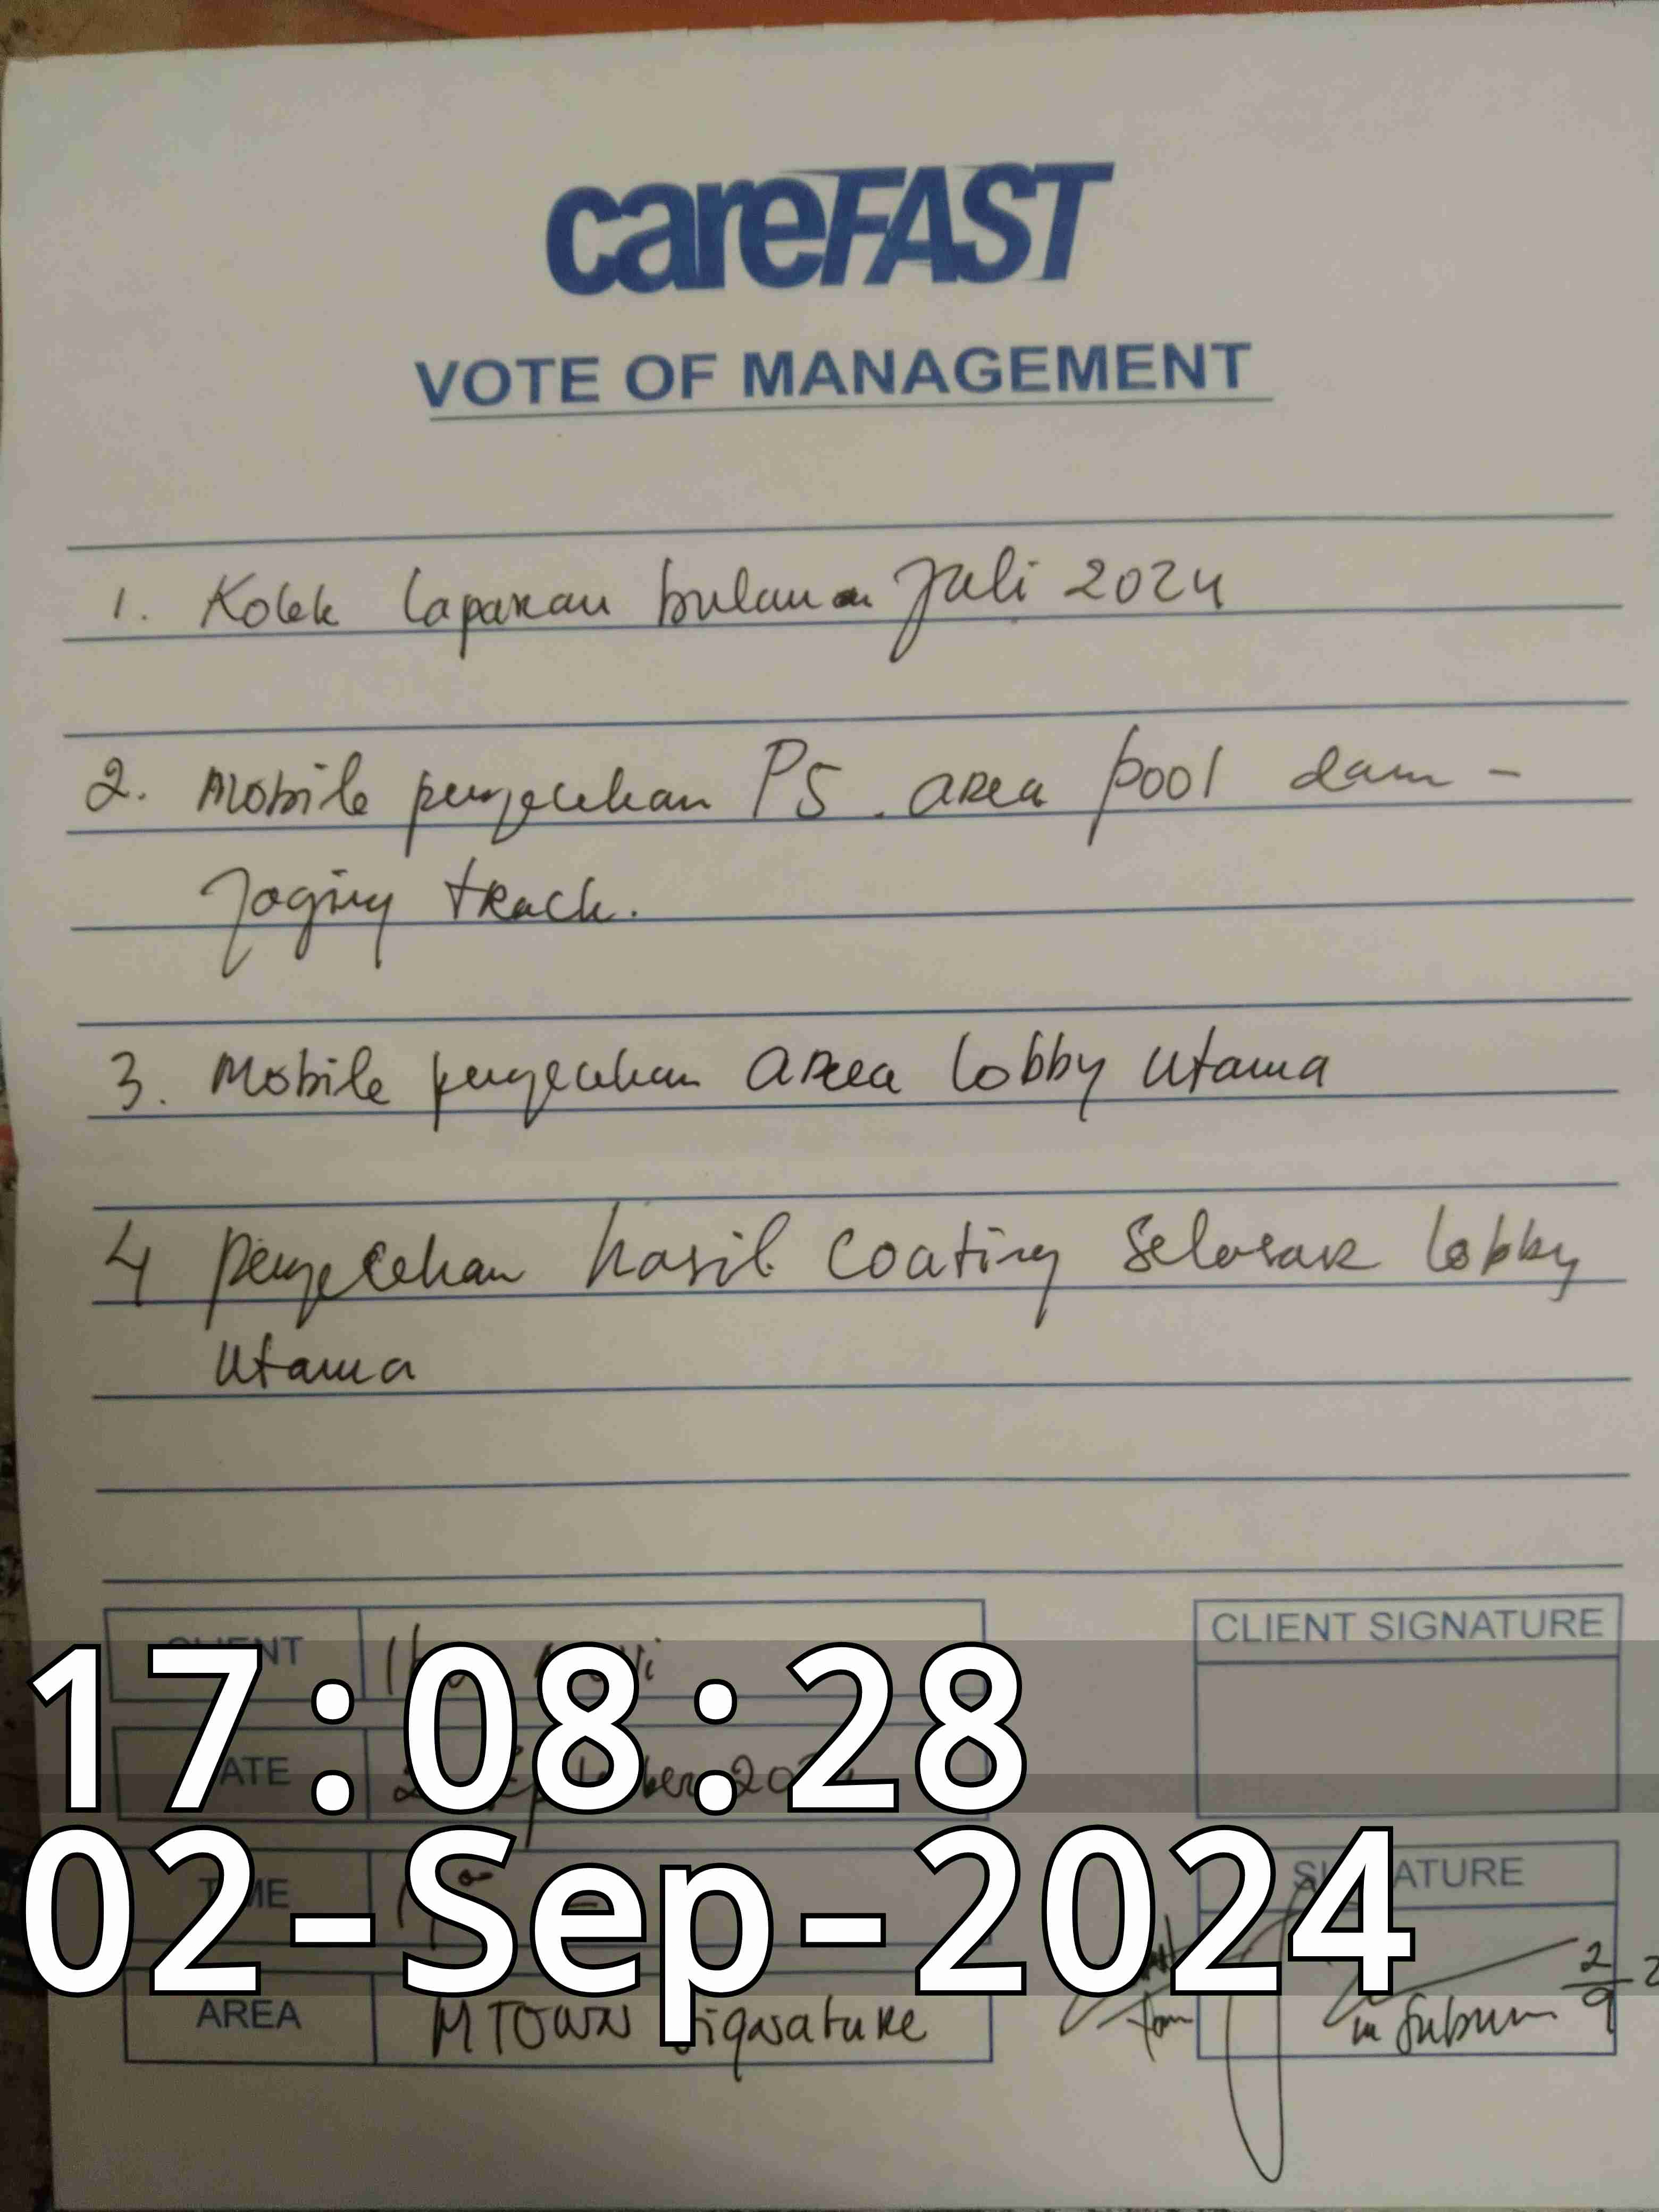 careFAST
VOTE OF MANAGEMENT
1. Kolek laporan bulanan Juli 2024
2. Mobile pengecekan PS. area pool dan -
Joging track.
3. Mobile pengecekan area lobby utama
4 Pengecekan hasil coating selasar lobby
utama
CLIENT SIGNATURE
17:08:28
DATE September 2024
02-Sep-2024
TIME
SIGNATURE
AREA MTOWN Signature
2/9